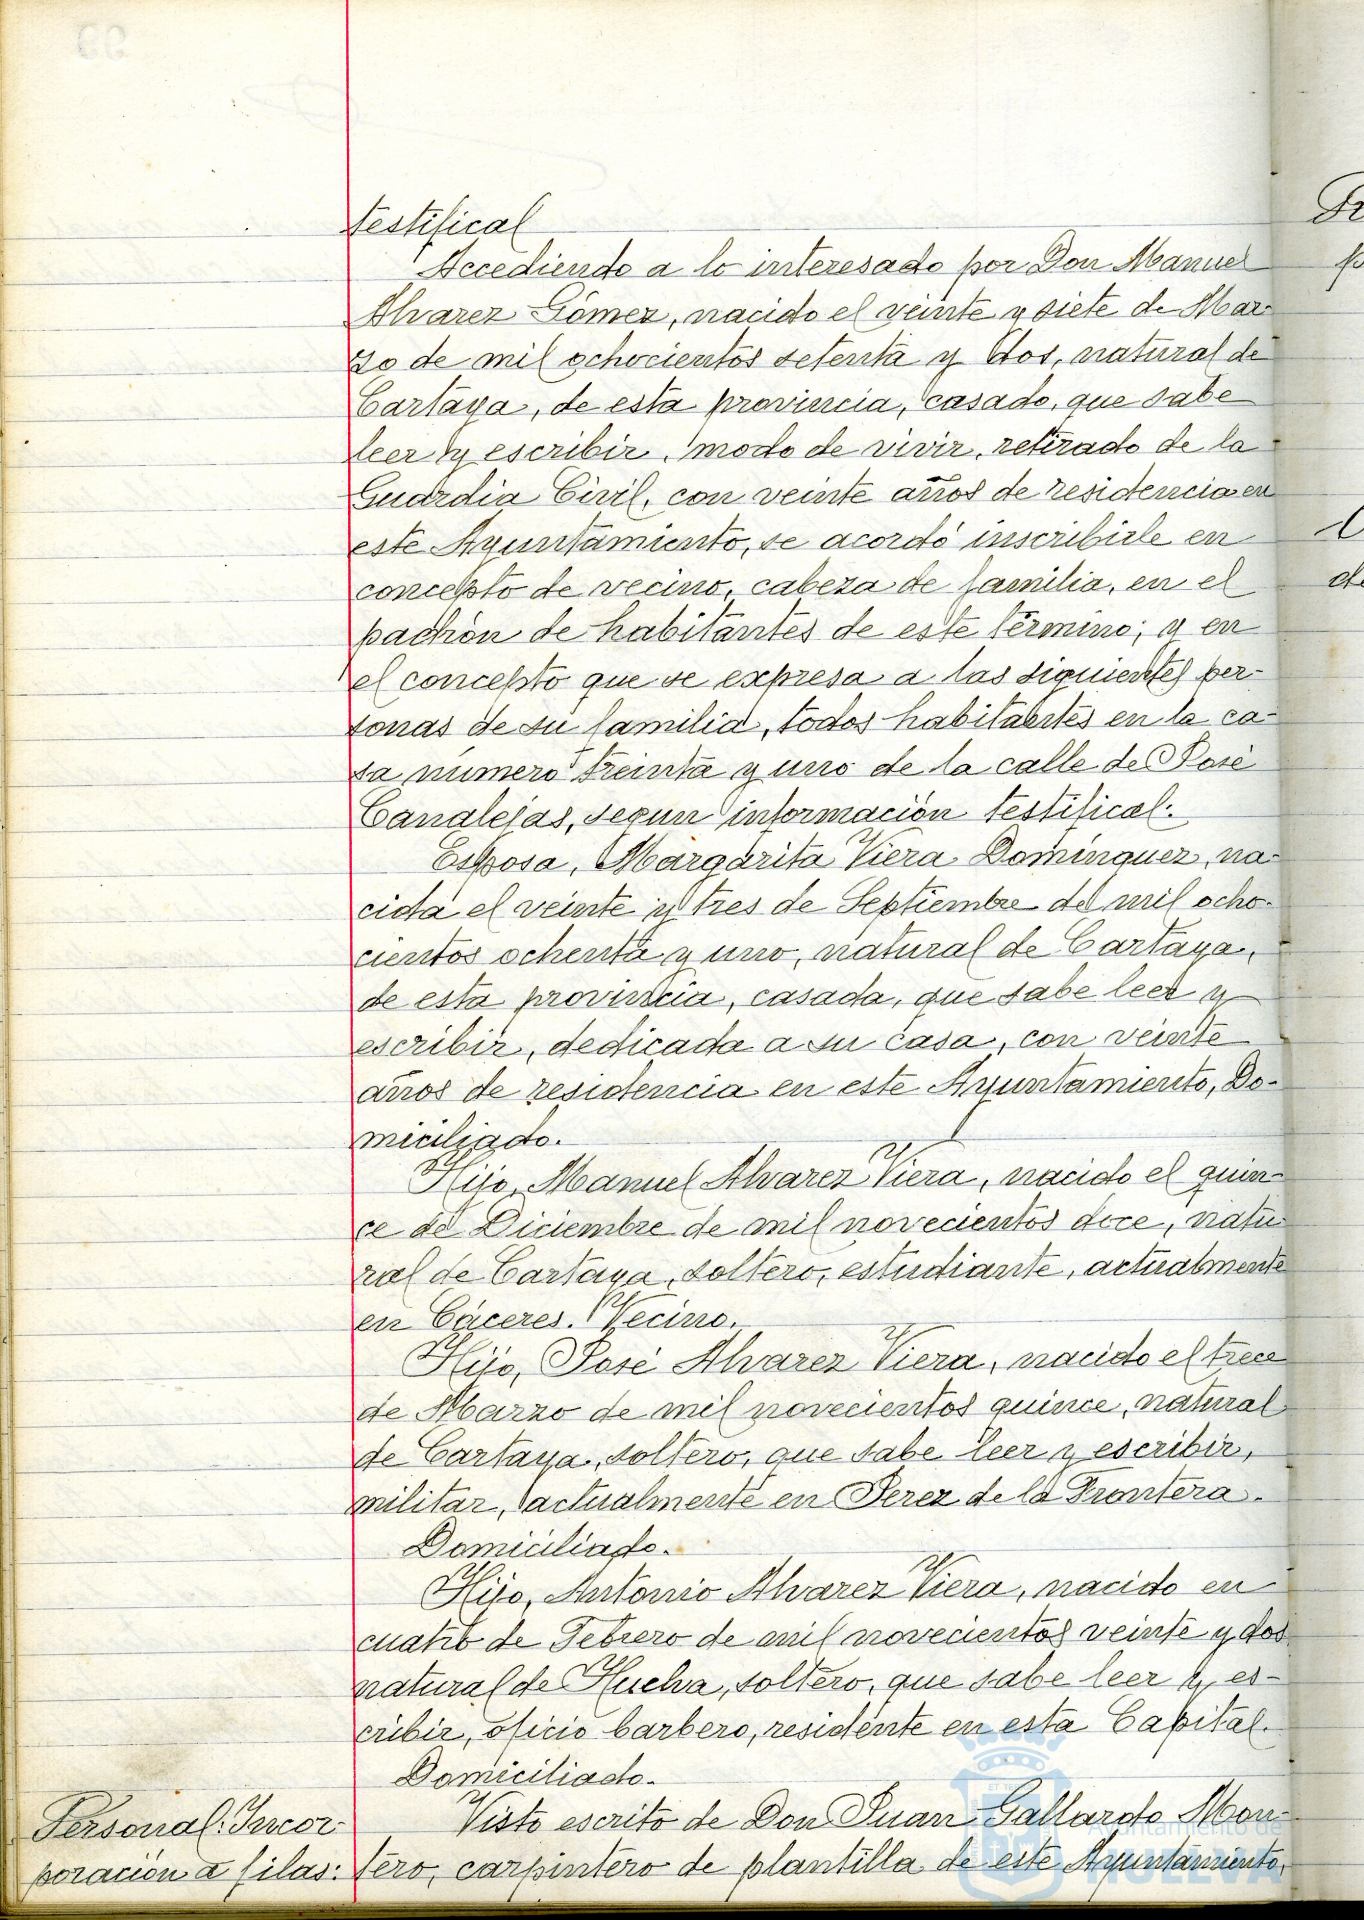 testifical
Accediendo a lo interesado por Don Manuel
Alvarez Gómez, nacido el veinte y siete de Mar-
zo de mil ochocientos setenta y dos, natural de
Cartaya, de esta provincia, casado, que sabe
leer y escribir, modo de vivir, retirado de la
Guardia Civil, con veinte años de residencia en
este Ayuntamiento, se acordó inscribirle en
concepto de vecino, cabeza de familia, en el
padrón de habitantes de este término; y en
el concepto que se expresa a las siguientes per-
sonas de su familia, todos habitantes en la ca-
sa número treinta y uno de la calle de José
Canalejas, segun información testifical.
Esposa, Margarita Viera Domínguez, na-
cida el veinte y tres de Septiembre de mil ocho-
cientos ochenta y uno, natural de Cartaya,
de esta provincia, casada, que sabe leer y
escribir, dedicada a su casa, con veinte
años de residencia en este Ayuntamiento, Do-
miciliado.
Hijo, Manuel Alvarez Viera, nacido el quin-
ce de Diciembre de mil novecientos doce, natu-
ral de Cartaya, soltero, estudiante, actualmente
en Cáceres. Vecino.
Hijo, José Alvarez Viera, nacido el trece
de Marzo de mil novecientos quince, natural
de Cartaya, soltero, que sabe leer y escribir,
militar, actualmente en Jerez de la Frontera.
Domiciliado.
Hijo, Antonio Alvarez Viera, nacido en
cuatro de Febrero de mil novecientos veinte y dos
natural de Huelva, soltero, que sabe leer y es-
cribir, oficio barbero, residente en esta Capital.
Domiciliado.
Personal: Incor-
poración a filas:
Visto escrito de Don Juan Gallardo Mon-
tero, carpintero de plantilla de este Ayuntamiento,
Ayuntamiento de
HUELVA